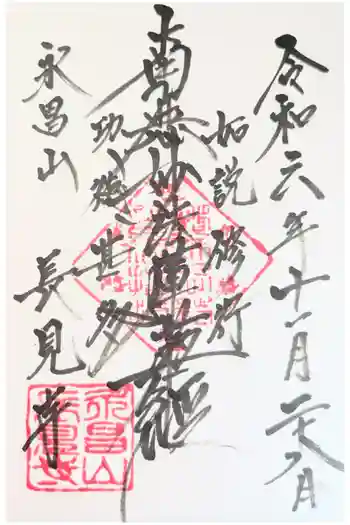 令和六年十一月二十八日
如説修行
南無妙法蓮華経
功徳甚多
永昌山
長見寺
永昌山